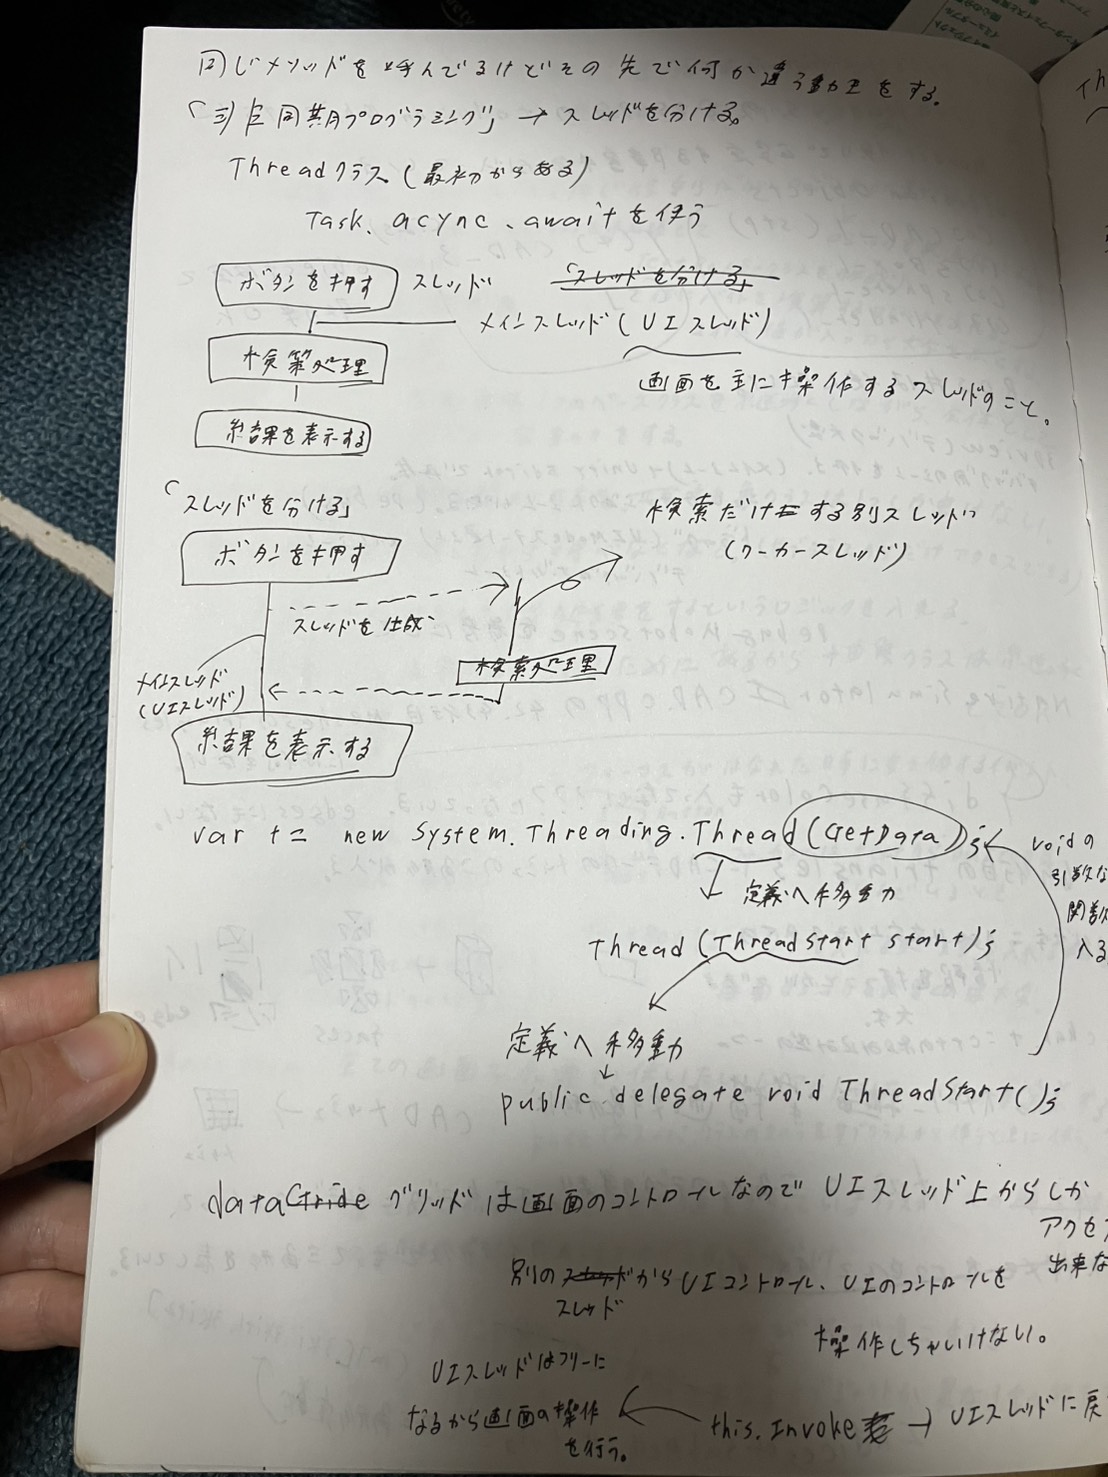 同じメソッドを呼んでるけどその先で何か違う動きをする。
「非同期プログラミング」→スレッドを分ける。
Threadクラス(最初からある)
Task、async、awaitを使う
ボタンを押す スレッド 「スレッドを分ける」
メインスレッド(UIスレッド)
検索処理
画面を主に操作するスレッドのこと。
結果を表示する
「スレッドを分ける」
検索だけをする別スレッド
ボタンを押す
(ワーカースレッド)
スレッドを生成
検索処理
メインスレッド
(UIスレッド)
結果を表示する
var t = new System.Threading.Thread(GetData);
voidの
引数な
関数
入る
定義へ移動
Thread(ThreadStart start);
定義へ移動
public delegate void ThreadStart();
dataGride グリッドは画面のコントロールなので UIスレッド上からしか
アクセ
出来な
別のスレッドからUIコントロール、UIのコントロールを
スレッド
操作しちゃいけない。
UIスレッドはフリーに
なるから画面の操作
を行う。
this.Invoke → UIスレッドに戻